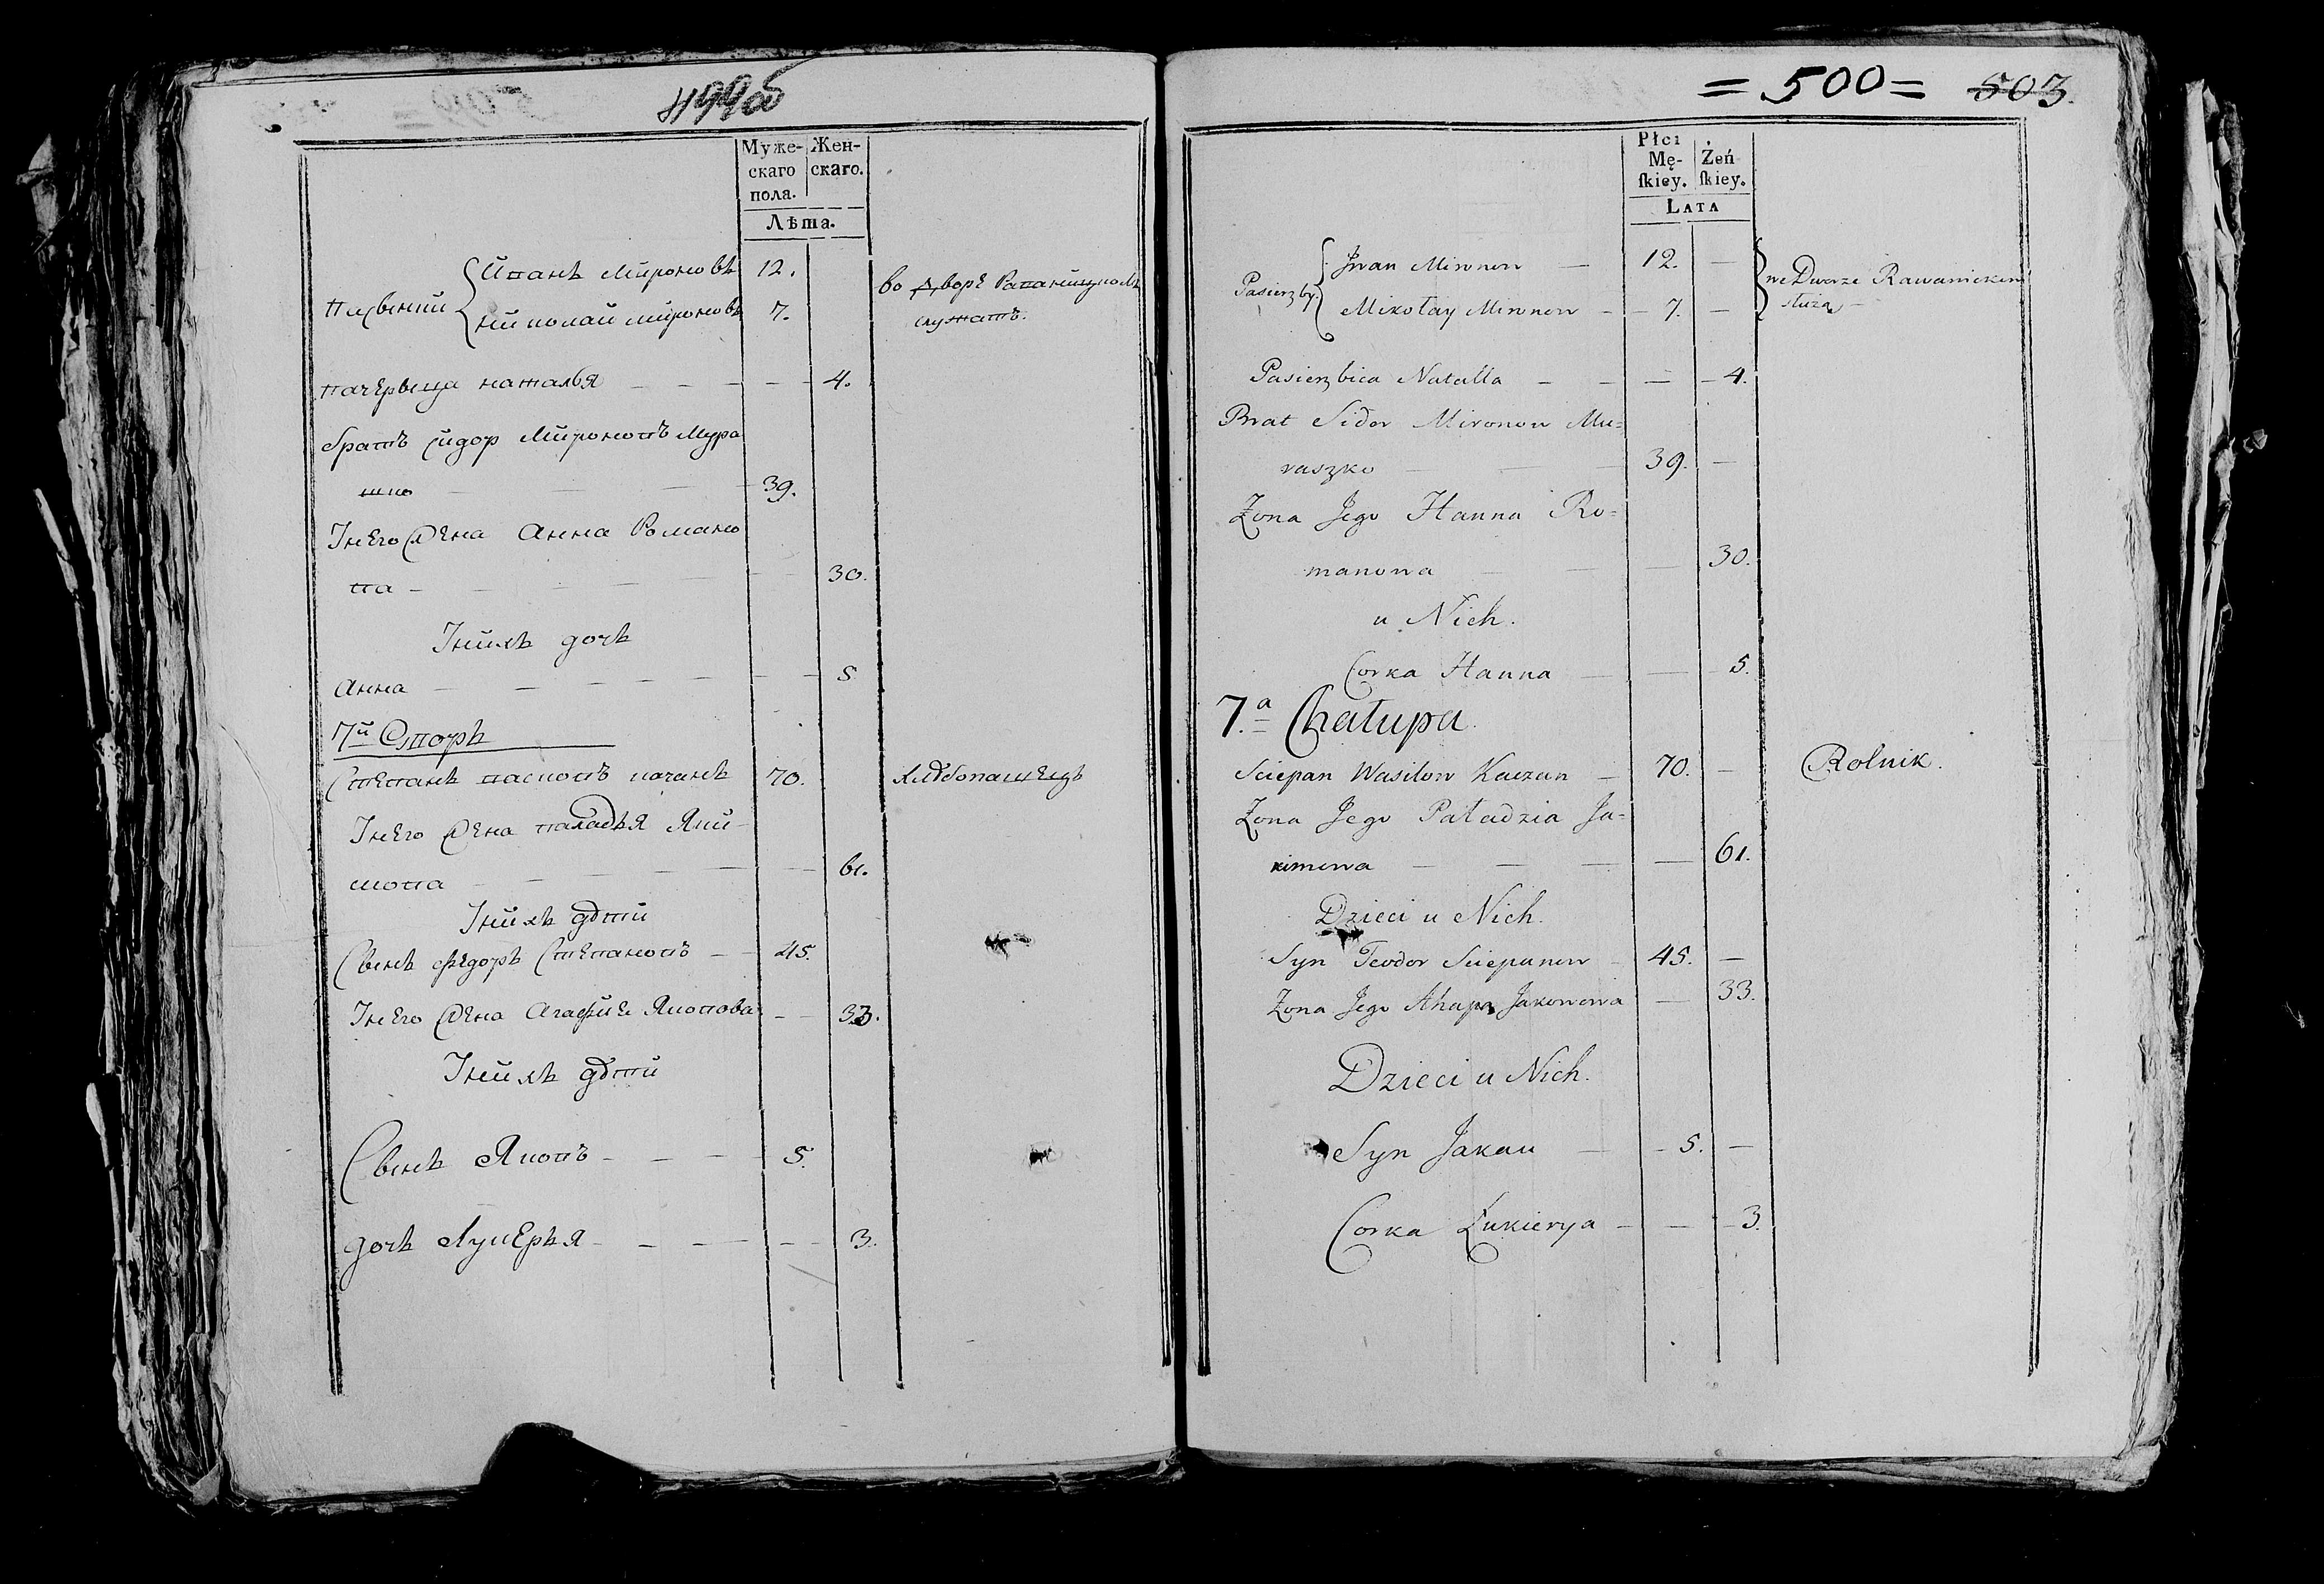 499об
Муже- Жен-
скаго скаго.
пола.
Лѣта.
Иванъ Мироновъ 12.
пасынки
Николай Мироновъ 7.
во дворѣ Раваницкомъ
служатъ.
пачерьица наталья — — — 4.
братъ Сидор Мироновъ Мура
шко — — — 39.
У него жена Анна Романо
ва — — — 30.
У нихъ дочь
Анна — — — 5
7й Дворъ
Степанъ васковъ качанъ 70. хлѣбопашецъ
У него жена паладья Яки-
мова — — — 61.
У нихъ дѣти
Сынъ федоръ Степановъ — 45.
У него жена Агафие Яковова — — 33.
У нихъ дѣти
Сынъ Яковъ — — — 5.
дочь Лукерья — — — 3.
= 500 = 503.
Płci
Mę- Żeń
ſkiey. ſkiey.
LATA
Jwan Mironow — 12. —
Pasierzby
Mikołay Mironow — 7. —
we Dworze Rawanickim
służą —
Pasierzbica Natalla — — — 4.
Brat Sidor Mironow Mu=
raszko — — 39. —
Żona Jego Hanna Ro=
manowa — — — 30.
u Nich.
Corka Hanna — — 5.
7.a Chałupa.
Sciepan Wasilow Kaczan — 70. — Rolnik.
Żona Jego Paładzia Ja=
kimowa — — — — 61.
Dzieci u Nich.
Syn Teodor Sciepanow — 45. —
Żona Jego Ahapa Jakowowa — 33.
Dzieci u Nich.
Syn Jakau — — 5. —
Corka Łukierya — — — 3.